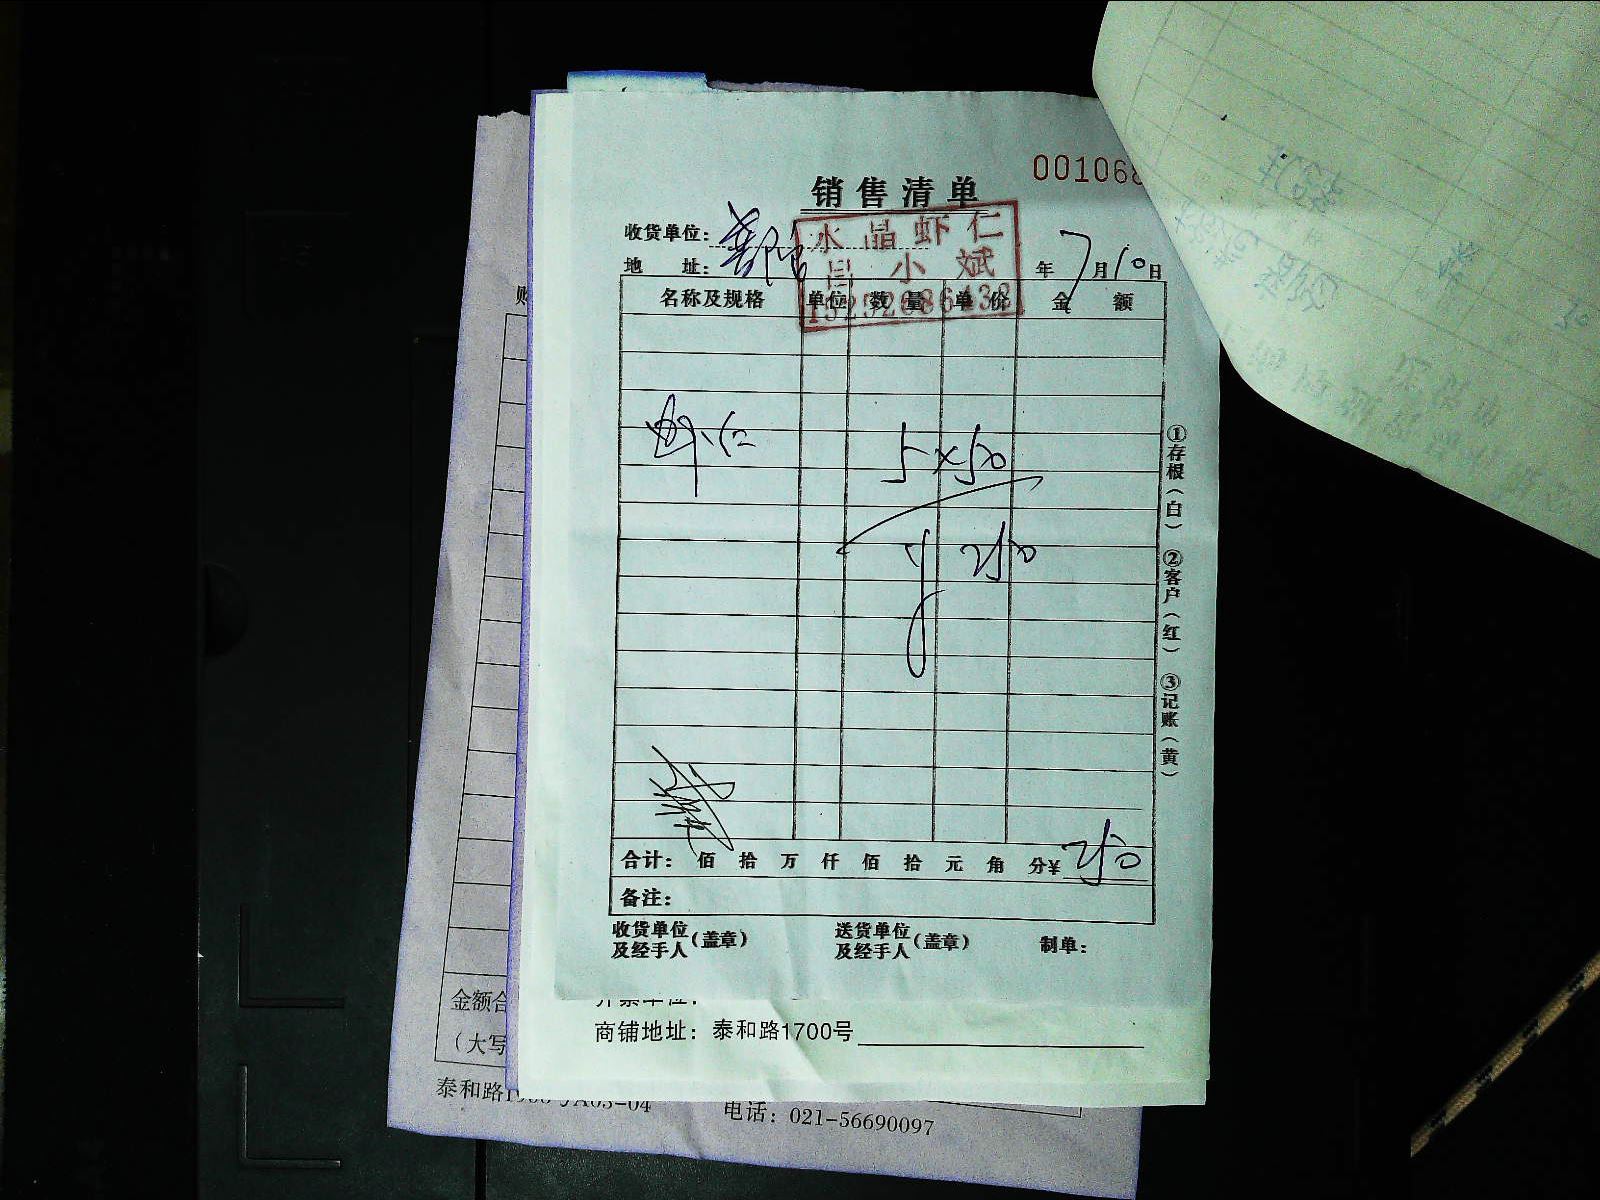 001068
销售清单
收货单位：
水晶虾仁
地 址：
小斌
年7月10日
名称及规格 单位 数量 单价 金额
15252686432
虾仁 5×50
250
合计： 佰 拾 万 仟 佰 拾 元 角 分¥ 250
备注：
收货单位及经手人（盖章） 送货单位及经手人（盖章） 制单：
①存根（白） ②客户（红） ③记账（黄）
商铺地址：泰和路1700号
金额合
（大写
泰和路
电话：021-56690097